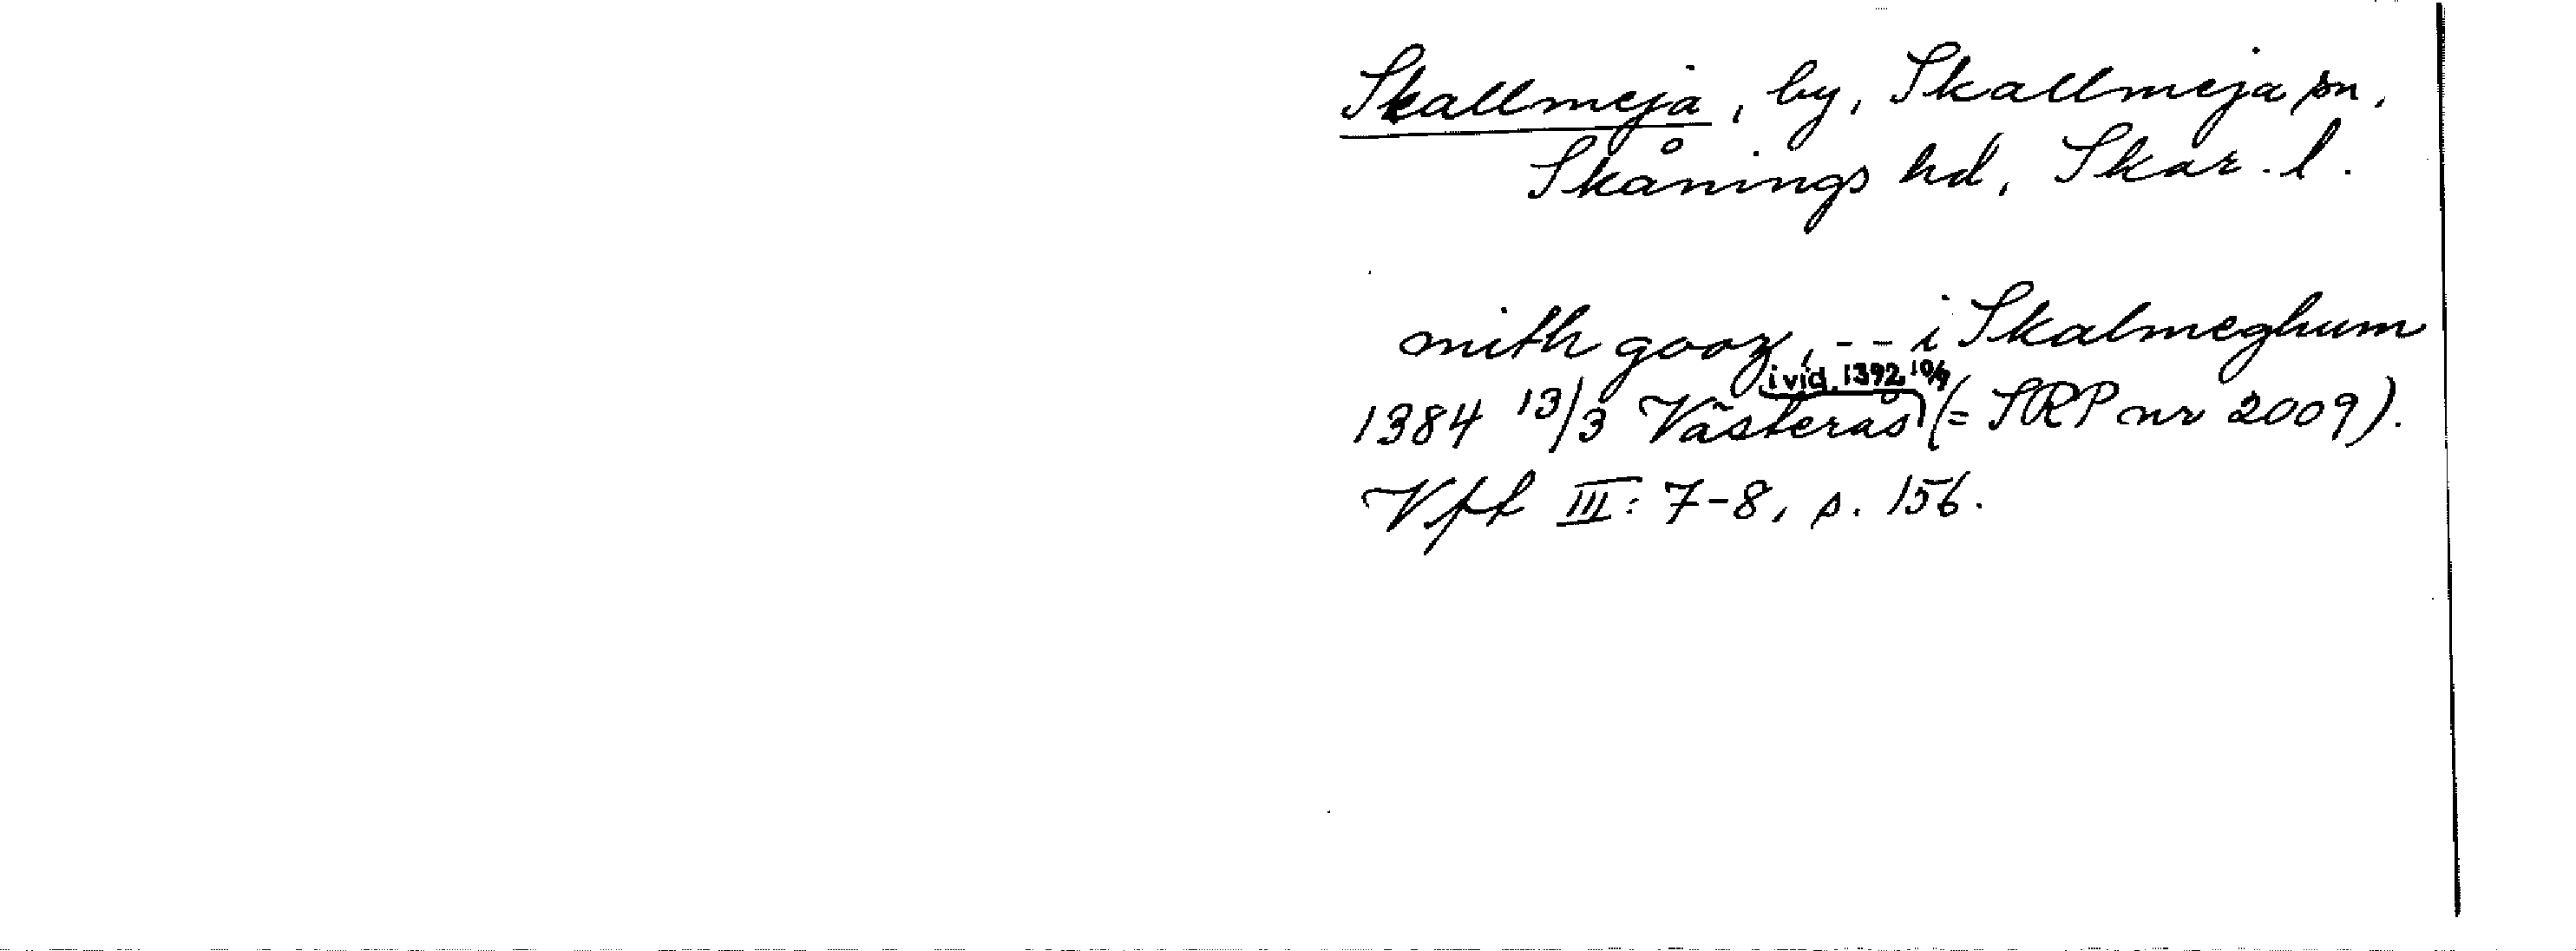 Skallmeja, by, Skallmeja sn,
Skånings hd, Skar. l.
mith gooz, -- i Skalmeghum
i vid. 1392 10/9
1384 13/3 Västerås (= SRP nr 2009).
Vff III: 7-8, s. 156.